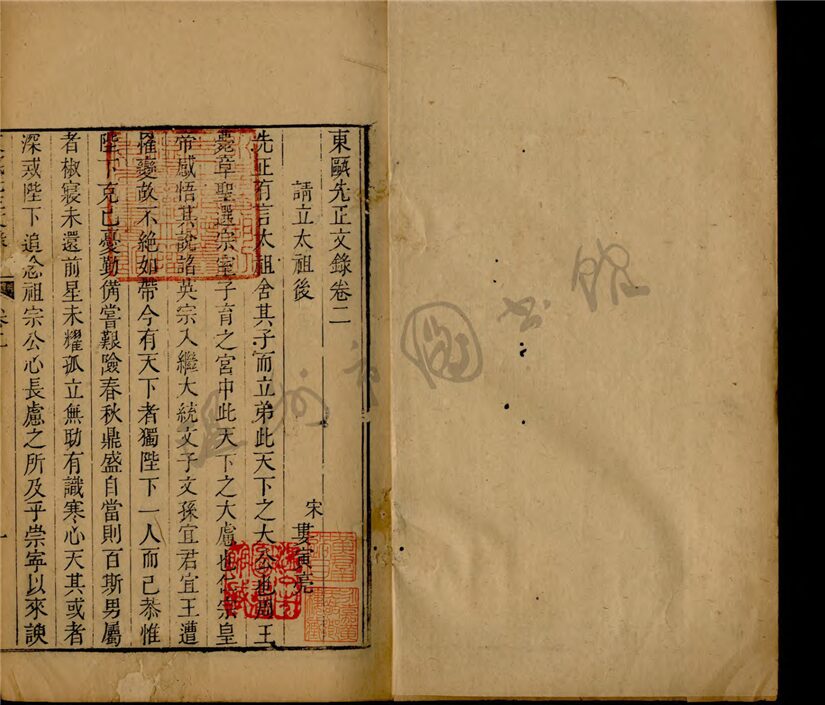 東甌先正文錄卷二
請立太祖後
宋 婁寅亮
先正有言太祖舍其子而立弟此天下之大公也周王
薨章聖選宗室子育之宮中此天下之大慮也仁宗皇
帝感悟其說詔英宗入繼大統文子文孫宜君宜王遭
罹變故不絕如帶今有天下者獨陛下一人而已恭惟
陛下克己憂勤備嘗艱險春秋鼎盛自當則百斯男屬
者椒寢未還前星未耀孤立無助有識寒心天其或者
深戒陛下追念祖宗公心長慮之所及乎崇寧以來諛
卷二
一
溫州市圖書館